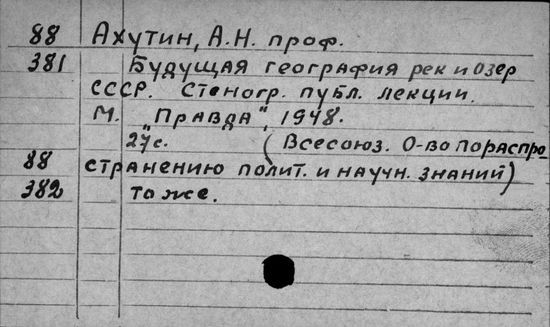 88 Ахутин, А.Н. проф.
381 Будущая география рек и озер
СССР. Стеногр. публ. лекции.
М. "Правда", 1948.
27с. (Всесоюз. О-во по распро-
88 странению полит. и научн. знаний)
382 то же.